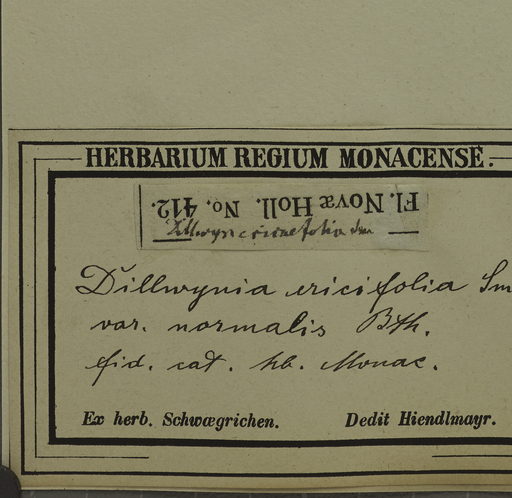 HERBARIUM REGIUM MONACENSE.
Fl. Novæ Holl. No. 412.
Dillwynia ericaefolia Sm
Dillwynia ericifolia Sm
var. normalis Bth.
fid. cat. hb. Monac.
Ex herb. Schwægrichen. Dedit Hiendlmayr.